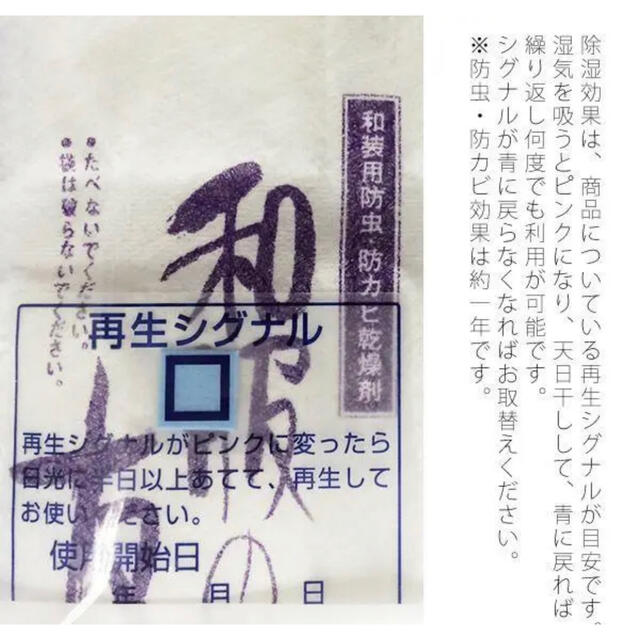 除湿効果は、商品についている再生シグナルが目安です。
湿気を吸うとピンクになり、天日干しして、青に戻れば
繰り返し何度でも利用が可能です。
シグナルが青に戻らなくなればお取替えください。
※防虫・防カビ効果は約一年です。
和装用防虫・防カビ乾燥剤
和服の
●たべないでください。
●袋は破らないでください。
再生シグナル
再生シグナルがピンクに変ったら
日光に半日以上あてて、再生して
お使いください。
使用開始日
年 月 日